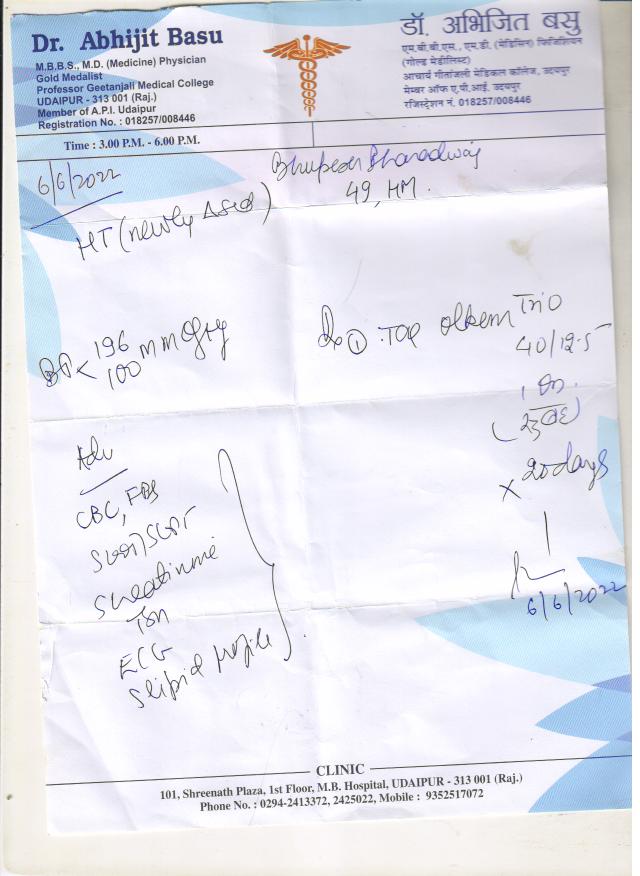 Dr. Abhijit Basu
M.B.B.S., M.D. (Medicine) Physician
Gold Medalist
Professor Geetanjali Medical College
UDAIPUR - 313 001 (Raj.)
Member of A.P.I. Udaipur
Registration No. : 018257/008446
Time : 3.00 P.M. - 6.00 P.M.
डॉ. अभिजित बसु
एम.बी.बी.एस., एम.डी. (मेडिसिन) फिजिशियन
(गोल्ड मेडीलिस्ट)
आचार्य गीतांजली मेडिकल कॉलेज, उदयपुर
मेम्बर ऑफ ए.पी.आई. उदयपुर
रजिस्ट्रेशन नं. 018257/008446
6/6/2022
Bhupesh Bharadwaj
49, HM.
HT (newly
BP < 196/100 mm of Hg
① Tab Olkem Trio
40/12.5
(सुबह)
x 20 days
6/6/2022
Adv
CBC, FBS
SGOT/SGPT
S creatinine
TSH
ECG
S lipid profile
CLINIC
101, Shreenath Plaza, 1st Floor, M.B. Hospital, UDAIPUR - 313 001 (Raj.)
Phone No. : 0294-2413372, 2425022, Mobile : 9352517072